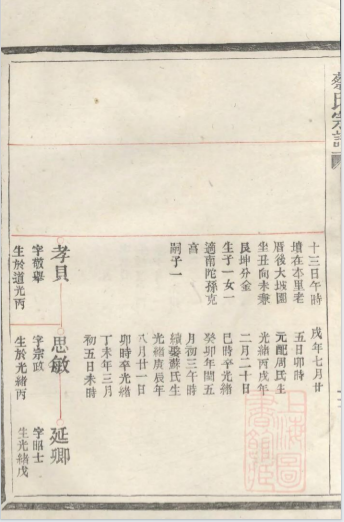 蔡氏宗譜
十三日午時
墳在本里老
厝後大坡園
坐丑向未兼
艮坤分金
生子一女一
適南陀孫克
宮
嗣子一
孝貝
字敬舉
生於道光丙
戌年七月廿
五日卯時
元配周氏生
光緒丙戌年
二月二十日
巳時卒光緒
癸卯年閏五
月初三午時
續娶蘇氏生
光緒庚辰年
八月廿一日
卯時卒光緒
丁未年三月
初五日未時
思敏
字宗政
生於光緒丙
延卿
字昭士
生光緒戊